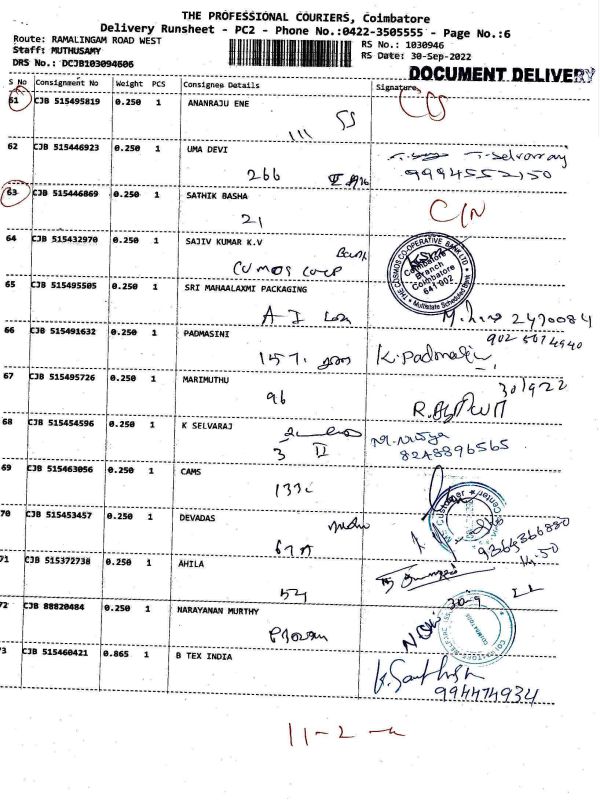 THE PROFESSIONAL COURIERS, Coimbatore
Delivery Runsheet - PC2 - Phone No.:0422-3505555 - Page No.:6
Route: RAMALINGAM ROAD WEST
Staff: MUTHUSAMY
DRS No.: DCJB103094606
RS No.: 1030946
RS Date: 30-Sep-2022
DOCUMENT DELIVERY
S No Consignment No Weight PCS Consignee Details Signature
61 CJB 515495819 0.250 1 ANANRAJU ENE
111 SS
62 CJB 515446923 0.250 1 UMA DEVI
266 T. Selvaraj
9994552150
63 CJB 515446869 0.250 1 SATHIK BASHA
21 C/N
64 CJB 515432970 0.250 1 SAJIV KUMAR K.V
Bank
THE COSMOS CO-OPERATIVE BANK LTD.
Coimbatore
Branch
Coimbatore
641 002
Multistate Scheduled Bank
65 CJB 515495505 0.250 1 SRI MAHAALAXMI PACKAGING
2470084
66 CJB 515491632 0.250 1 PADMASINI
157. K. Padmasini
67 CJB 515495726 0.250 1 MARIMUTHU
96
30/9/22
68 CJB 515454596 0.250 1 K SELVARAJ
3 II
8248896565
69 CJB 515463056 0.250 1 CAMS
133c
Customer Center
70 CJB 515453457 0.250 1 DEVADAS
67A
9364366830
14.50
71 CJB 515372738 0.250 1 AHILA
54
72 CJB 88820484 0.250 1 NARAYANAN MURTHY
30-9
73 CJB 515460421 0.865 1 B TEX INDIA
K. Santhosh
994474934
11-2-